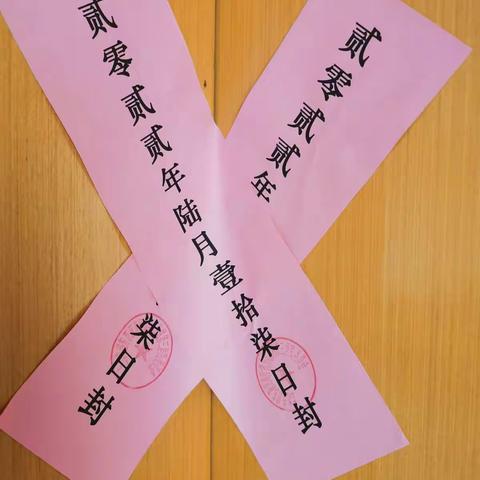 贰零贰贰年陆月壹拾柒日封
贰零贰贰年
柒日封